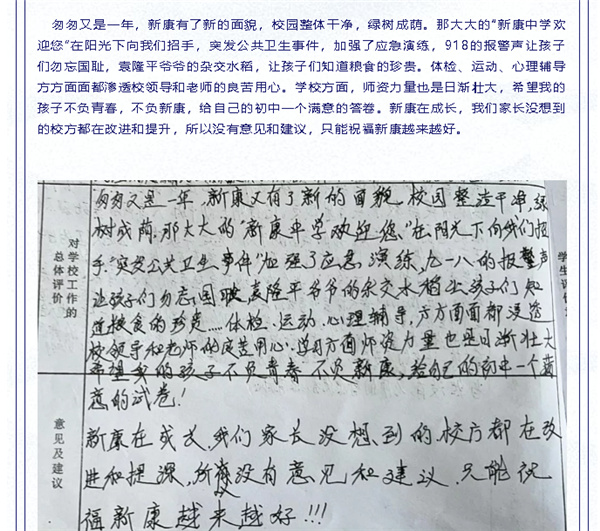 匆匆又是一年,新康有了新的面貌,校园整体干净,绿树成荫。那大大的“新康中学欢
迎您”在阳光下向我们招手,突发公共卫生事件,加强了应急演练,918的报警声让孩子
们勿忘国耻,袁隆平爷爷的杂交水稻,让孩子们知道粮食的珍贵。体检、运动、心理辅导
方方面面都渗透校领导和老师的良苦用心。学校方面,师资力量也是日渐壮大,希望我的
孩子不负青春,不负新康,给自己的初中一个满意的答卷。新康在成长,我们家长没想到
的校方都在改进和提升,所以没有意见和建议,只能祝福新康越来越好。
对学校工作的
总体评价
匆匆又是一年,新康又有了新的面貌,校园整洁干净,绿
树成荫.那大大的“新康中学欢迎您”在阳光下向我们招
手.“突发公共卫生事件”加强了应急演练,九一八的报警声
让孩子们勿忘国耻,袁隆平爷爷的杂交水稻让孩子们知
道粮食的珍贵……体检、运动、心理辅导,方方面面都渗透
校领导和老师的良苦用心.学习方面师资力量也是日渐壮大
希望我的孩子不负青春 不负新康,给自己的初中一个满
意的试卷!
意见及建议
新康在成长,我们家长没想到的,校方都在改
进和提深,所以没有意见和建议,只能祝
福新康越来越好!!!
学生评